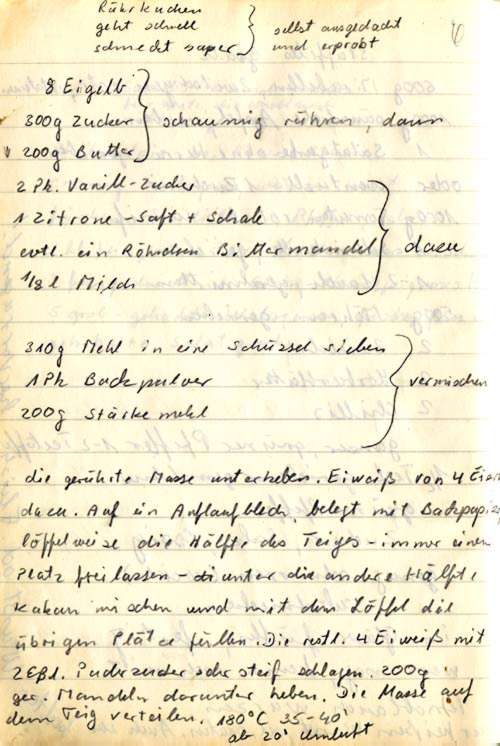 Rührkuchen
geht schnell
schmeckt super
selbst ausgedacht
und erprobt
8 Eigelb
300g Zucker
200g Butter
schaumig rühren, dann
2 Pk. Vanill-Zucker
1 Zitrone - Saft + Schale
evtl. ein Röhrchen Bittermandel
1/8 l Milch
dazu
310g Mehl in eine Schüssel sieben
1 Pk Backpulver
200g Stärkemehl
vermischen
die gerührte Masse unterheben. Eiweiß von 4 Eiern
dazu. Auf ein Auflaufblech, belegt mit Backpapier
löffelweise die Hälfte des Teiges - immer einen
Platz freilassen - unter die andere Hälfte
Kakau mischen und mit dem Löffel die
übrigen Plätze füllen. Die restl. 4 Eiweiß mit
2 Eßl. Puderzucker sehr steif schlagen. 200g
ger. Mandeln darunter heben. Die Masse auf
dem Teig verteilen. 180°C 35-40'
ab 20' Umluft